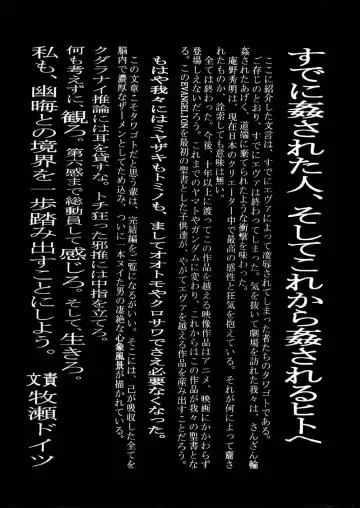 すでに姦された人、そしてこれから姦されるヒトへ
ここに紹介した文言は、すでにエヴァによって凌辱されてしまった者たちのタワゴトである。
ご存じのとおり、すでにエヴァは終わってしまった。気を抜いて劇場を訪れた我々は、さんざん輪
姦されたあげく、道端に棄てられたような衝撃を味わった。
庵野秀明は、現在日本のクリエーター中で最高の感性と狂気を抱えている。それが何によって齎さ
れたものか、詮索しても意味は無い。
全ては終わった。今後、十年以上に渡ってこの作品を越える映像作品はアニメ、映画にかかわらず
登場しえないだろう。これまでのヤマトやガンダムに変わり、これからはこの作品が我々の聖書となり
このEVANGELIONを最初の聖書とした子供達が、やがてエヴァを越える作品を産み出すことだろう。
もはや我々にはミヤザキもトミノも、ましてオオトモやクロサワでさえ必要なくなった。
この文章こそタワゴトだと思う輩は、完結編をご覧になるがいい。そこには、己が吸収した全てを
脳内で濃厚なザーメンとしてため込み、ついに一本ヌイた男の凄絶な心象風景が描かれている。
クダラナイ推論には耳を貸すな。トチ狂った邪推には中指を立てろ。
何も考えずに、観ろ。第六感まで総動員して感じろ。そして、生きろ。
私も、幽晦との境界を一歩踏み出すことにしよう。
文責 牧瀬ドイツ